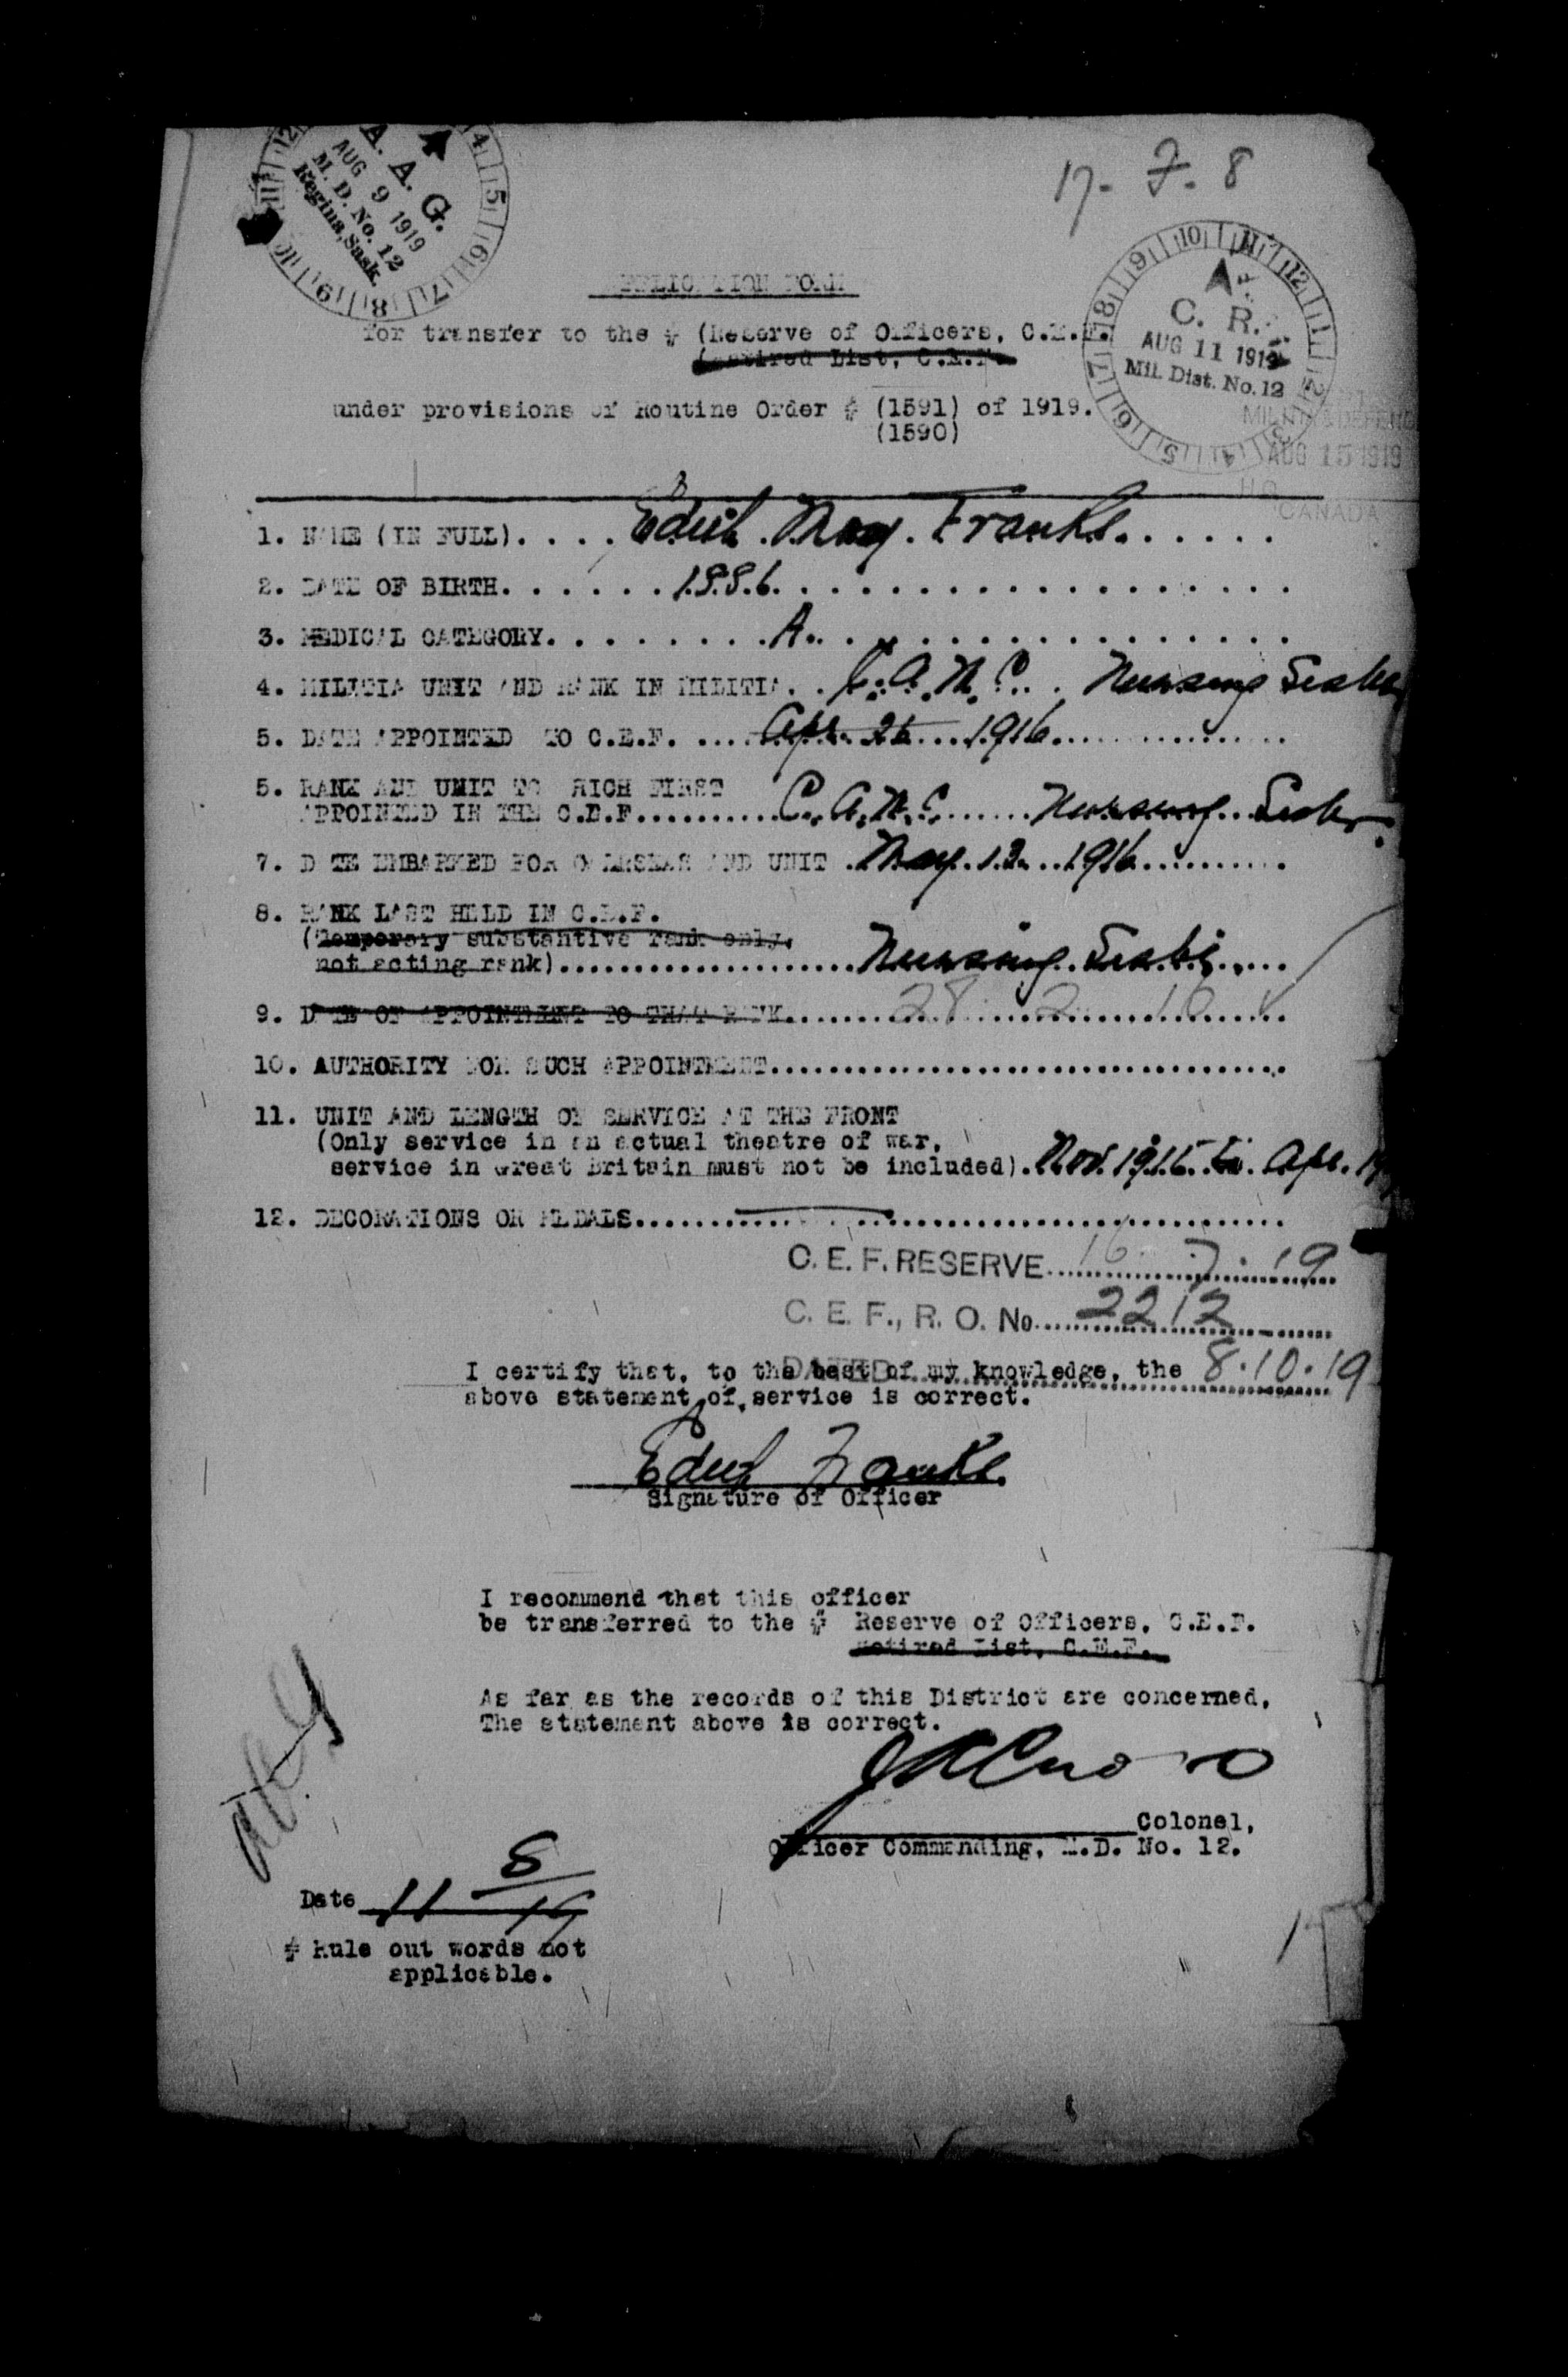 A. A. G.
AUG 9 1919
M. D. No. 12
Regina, Sask.
17- F. 8
APPLICATION FORM
for transfer to the # (Reserve of Officers, C.E.F.
(Retired List, C.E.F.
under provisions of Routine Order # (1591) of 1919.
(1590)
C. R.
AUG 11 1919
Mil. Dist. No. 12
MILITIA & DEFENCE
AUG 15 1919
H.Q.
CANADA
1. NAME (IN FULL).... Edith May Franke......
2. DATE OF BIRTH...... 1886..................
3. MEDICAL CATEGORY........A..................
4. MILITIA UNIT AND RANK IN MILITIA.. C.A.M.C... Nursing Sister
5. DATE APPOINTED TO C.E.F. .... Apr. 26...1916................
5. RANK AND UNIT TO WHICH FIRST
APPOINTED IN THE C.E.F.......... C.A.M.C....... Nursing.. Sister.
7. DATE EMBARKED FOR OVERSEAS AND UNIT .May.12...1916...........
8. RANK LAST HELD IN C.E.F.
(Temporary substantive rank only,
not acting rank)..................... Nursing. Sister.....
9. DATE OF APPOINTMENT TO THAT RANK....... 28 . 2 . 16
10. AUTHORITY FOR SUCH APPOINTMENT....................................
11. UNIT AND LENGTH OF SERVICE AT THE FRONT
(Only service in an actual theatre of war,
service in Great Britain must not be included). Nov. 1916. to. Apr.
12. DECORATIONS OR MEDALS.............................................
C. E. F. RESERVE 16. 7. 19
C. E. F., R. O. No. 2212
DATED 8.10.19
I certify that, to the best of my knowledge, the
above statement of service is correct.
Edith Franke
Signature of Officer
I recommend that this officer
be transferred to the # Reserve of Officers, C.E.F.
Retired List, C.E.F.
As far as the records of this District are concerned,
The statement above is correct.
Colonel,
Officer Commanding, M.D. No. 12.
Date 11 8/19
# Rule out words not
applicable.